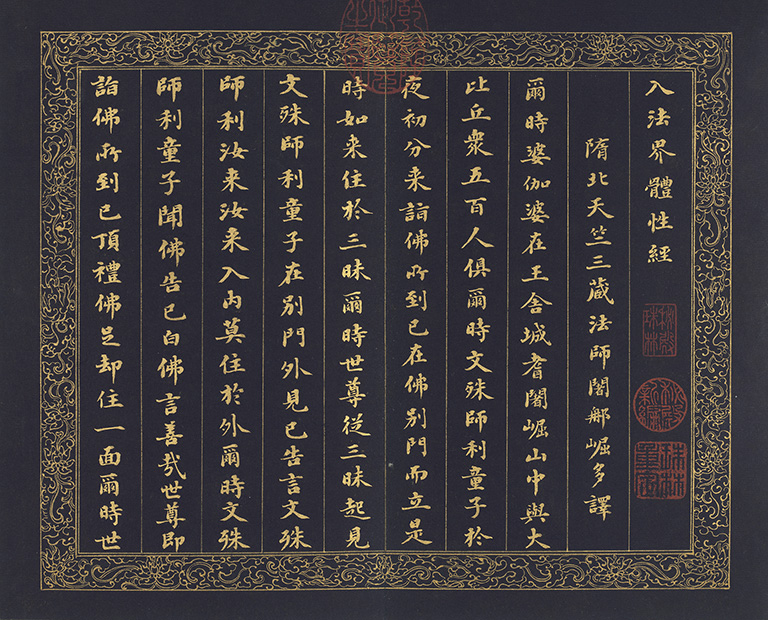 入法界體性經
隋北天竺三藏法師闍那崛多譯
爾時婆伽婆在王舍城耆闍崛山中與大
比丘眾五百人俱爾時文殊師利童子於
夜初分來詣佛所到已在佛別門而立是
時如来住於三昧爾時世尊從三昧起見
文殊師利童子在別門外見已告言文殊
師利汝来汝来入內莫住於外爾時文殊
師利童子聞佛告已白佛言善哉世尊即
詣佛所到已頂禮佛足却住一面爾時世
秘殿珠林